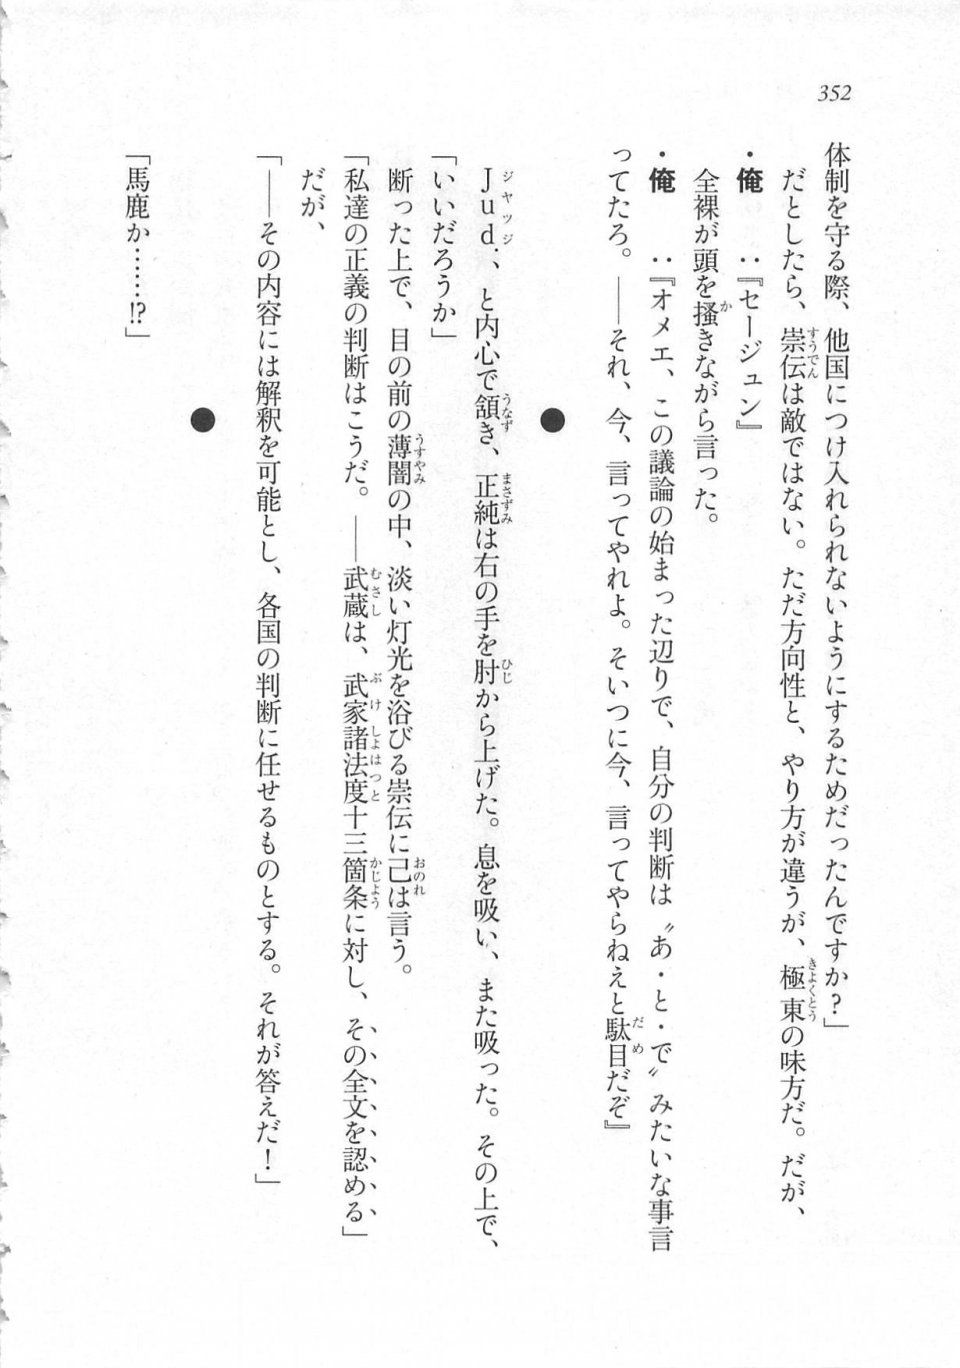 352
体制を守る際、他国につけ入れられないようにするためだったんですか？」
だとしたら、崇伝は敵ではない。ただ方向性と、やり方が違うが、極東の味方だ。だが、
・俺　　：『セージュン』
全裸が頭を掻きながら言った。
・俺　　：『オメエ、この議論の始まった辺りで、自分の判断は〝あ・と・で〟みたいな事言
ってたろ。――それ、今、言ってやれよ。そいつに今、言ってやらねえと駄目だぞ』
●
Jud.、と内心で頷き、正純は右の手を肘から上げた。息を吸い、また吸った。その上で、
「いいだろうか」
断った上で、目の前の薄闇の中、淡い灯光を浴びる崇伝に己は言う。
「私達の正義の判断はこうだ。――武蔵は、武家諸法度十三箇条に対し、その全文を認める」
だが、
「――その内容には解釈を可能とし、各国の判断に任せるものとする。それが答えだ！」
●
「馬鹿か……!?」